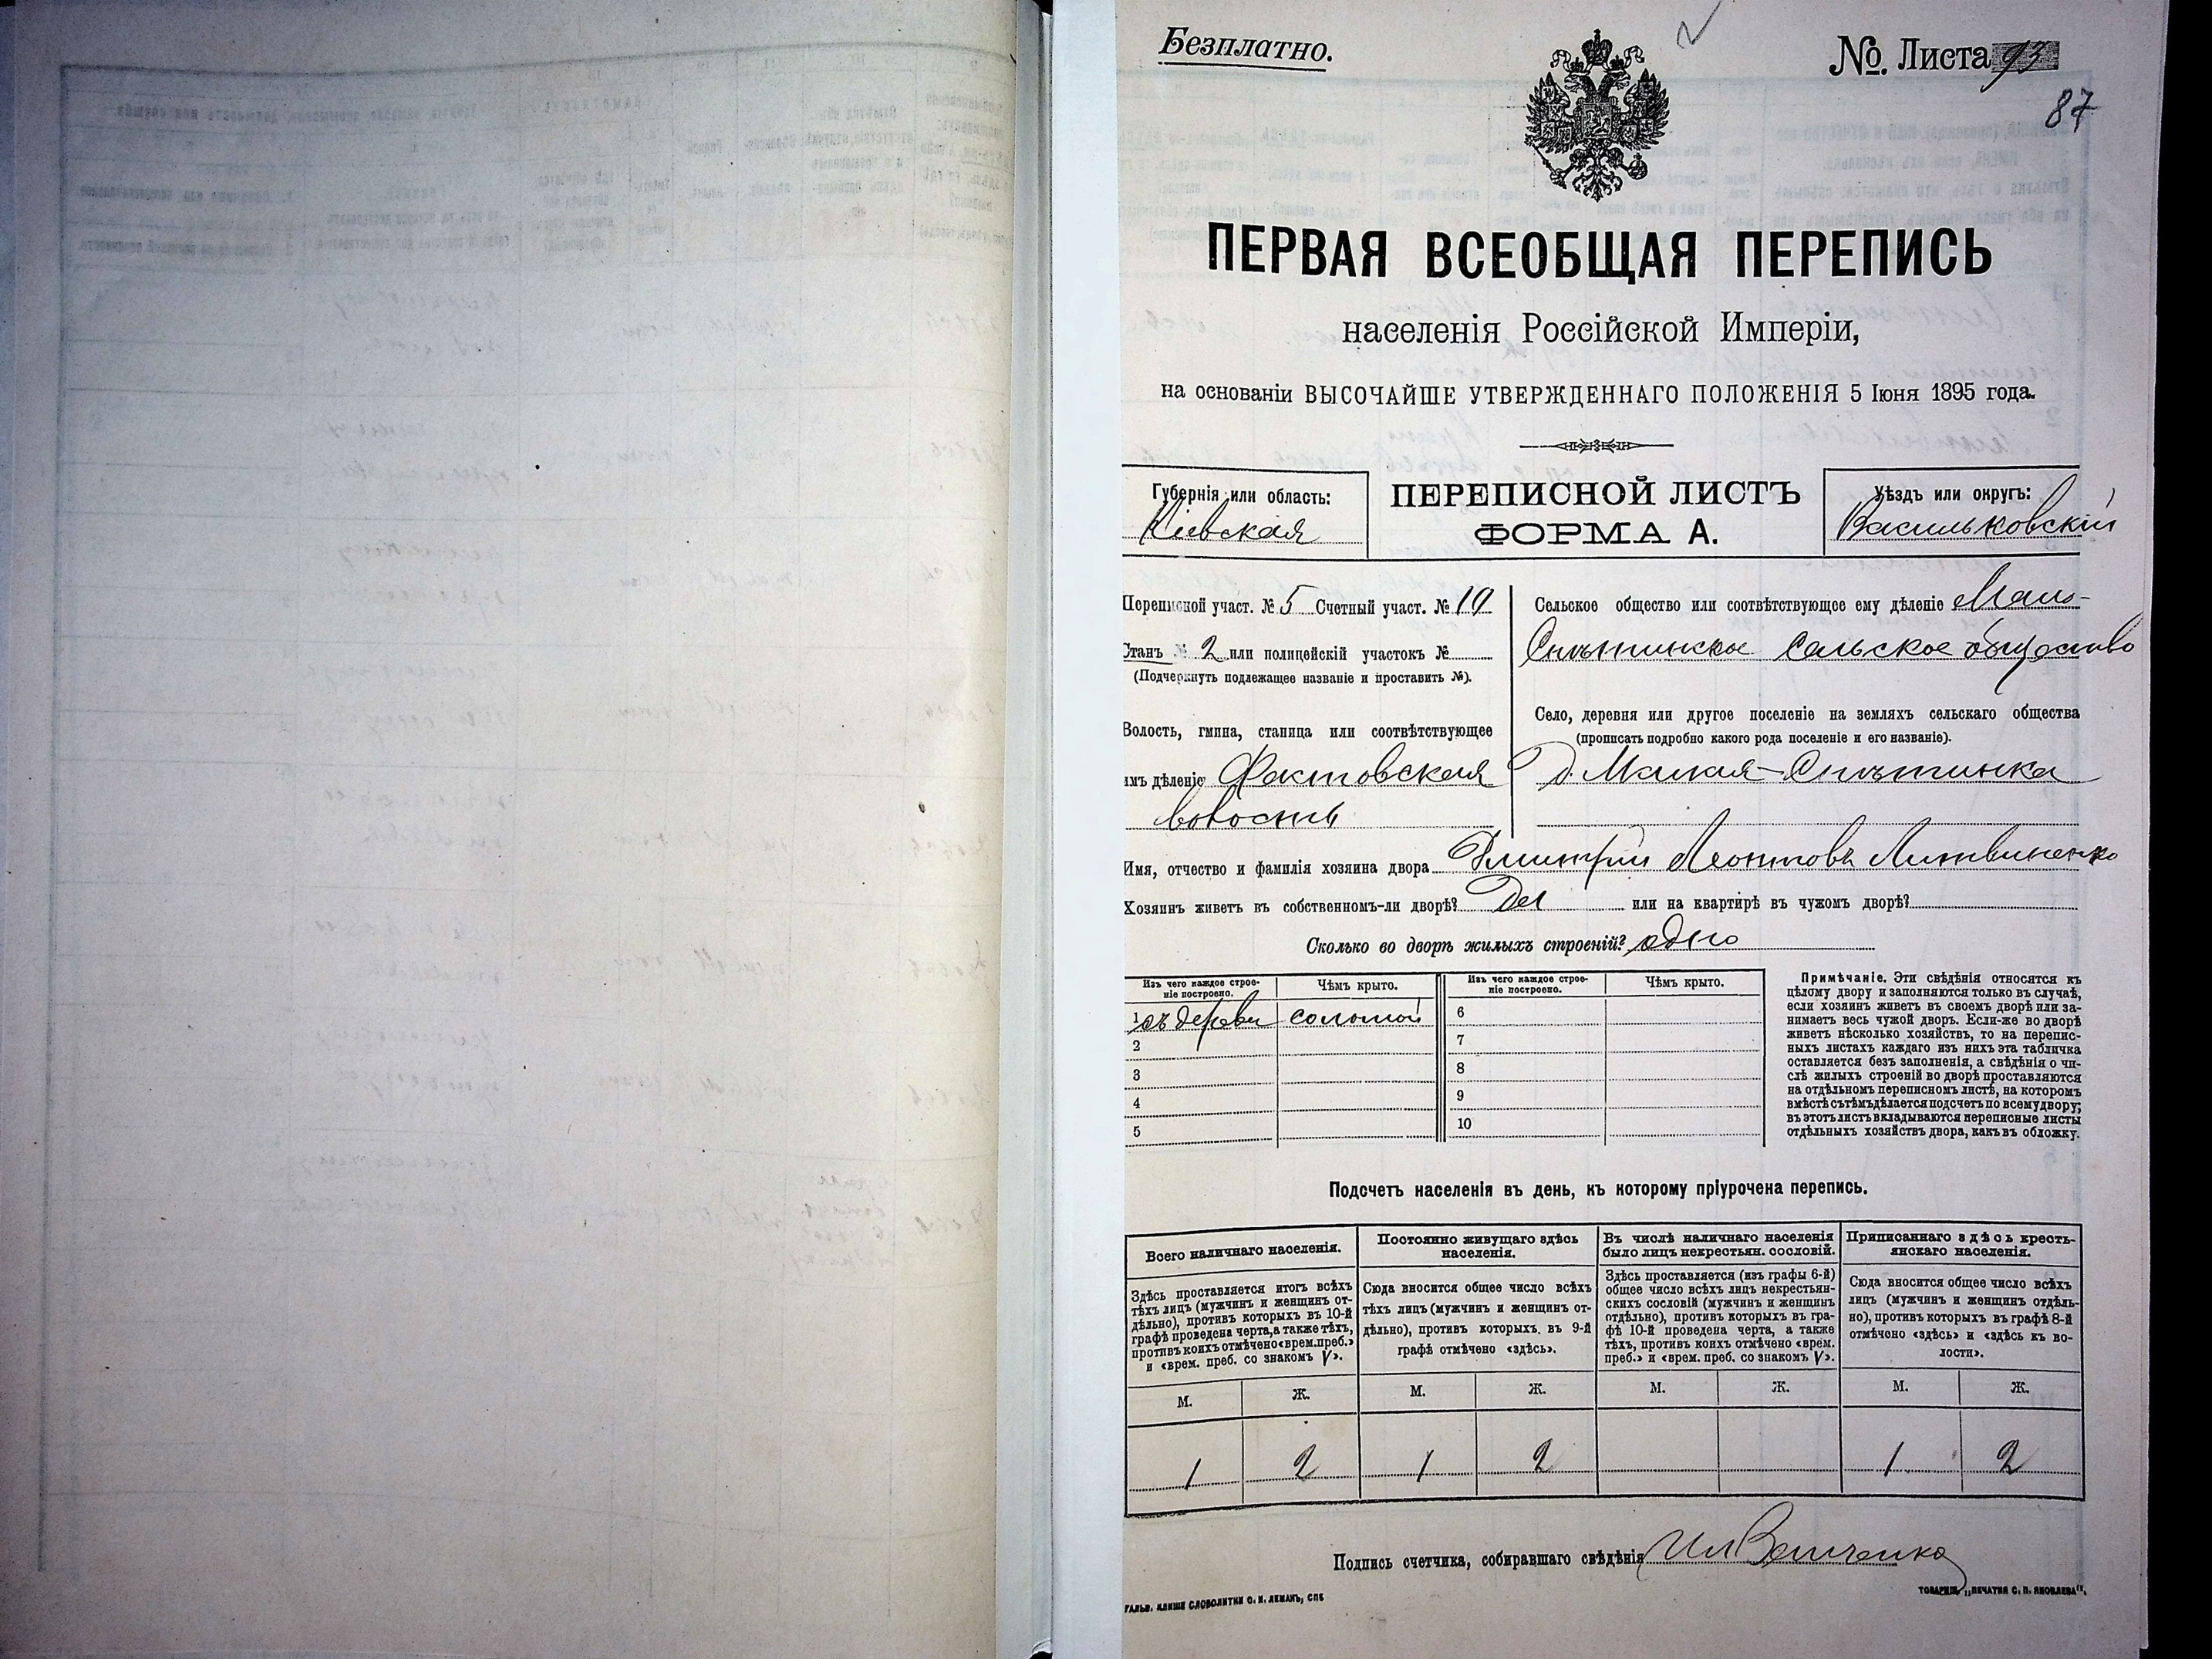 Безплатно.
№ Листа 93
87
ПЕРВАЯ ВСЕОБЩАЯ ПЕРЕПИСЬ
населенія Россійской Имперіи,
на основаніи ВЫСОЧАЙШЕ УТВЕРЖДЕННАГО ПОЛОЖЕНІЯ 5 Іюня 1895 года.
Губернія или область:
Кіевская
ПЕРЕПИСНОЙ ЛИСТЪ
ФОРМА А.
Уѣздъ или округъ:
Васильковскій
Переписной участ. № 5 Счетный участ. № 10
Станъ № 2 или полицейскій участокъ №
(Подчеркнуть подлежащее названіе и проставить №).
Волость, гмина, станица или соотвѣтствующее
имъ дѣленіе Фастовская
волость
Сельское общество или соотвѣтствующее ему дѣленіе Мало-
Снѣтинское сельское общество
Село, деревня или другое поселеніе на земляхъ сельскаго общества
(прописать подробно какого рода поселеніе и его названіе).
д. Малая-Снѣтинка
Имя, отчество и фамилія хозяина двора Дмитрій Леонтовъ Литвиненко
Хозяинъ живетъ въ собственномъ-ли дворѣ? Да или на квартирѣ въ чужомъ дворѣ?
Сколько во дворѣ жилыхъ строеній? одно
Изъ чего каждое строе-
ніе построено.
Чѣмъ крыто.
Изъ чего каждое строе-
ніе построено.
Чѣмъ крыто.
1 соломой 6
2 7
3 8
4 9
5 10
Примѣчаніе. Эти свѣдѣнія относятся къ
цѣлому двору и заполняются только въ случаѣ,
если хозяинъ живетъ въ своемъ дворѣ или за-
нимаетъ весь чужой дворъ. Если-же во дворѣ
живетъ нѣсколько хозяйствъ, то на перепис-
ныхъ листахъ каждаго изъ нихъ эта табличка
оставляется безъ заполненія, а свѣдѣнія о чи-
слѣ жилыхъ строеній во дворѣ проставляются
на отдѣльномъ переписномъ листѣ, на которомъ
вмѣстѣ съ тѣмъ дѣлается подсчетъ по всему двору;
въ этотъ листъ вкладываются переписные листы
отдѣльныхъ хозяйствъ двора, какъ въ обложку.
Подсчетъ населенія въ день, къ которому пріурочена перепись.
Всего наличнаго населенія.
Здѣсь проставляется итогъ всѣхъ
тѣхъ лицъ (мужчинъ и женщинъ от-
дѣльно), противъ которыхъ въ 10-й
графѣ проведена черта, а также тѣхъ,
противъ коихъ отмѣчено «врем. преб.»
и «врем. преб. со знакомъ V».
Постоянно живущаго здѣсь
населенія.
Сюда вносится общее число всѣхъ
тѣхъ лицъ (мужчинъ и женщинъ от-
дѣльно), противъ которыхъ въ 9-й
графѣ отмѣчено «здѣсь».
Въ числѣ наличнаго населенія
было лицъ некрестьян. сословій.
Здѣсь проставляется (изъ графы 6-й)
общее число всѣхъ лицъ некрестьян-
скихъ сословій (мужчинъ и женщинъ
отдѣльно), противъ которыхъ въ гра-
фѣ 10-й проведена черта, а также
тѣхъ, противъ коихъ отмѣчено «врем.
преб.» и «врем. преб. со знакомъ V».
Приписаннаго здѣсь кресть-
янскаго населенія.
Сюда вносится общее число всѣхъ
лицъ (мужчинъ и женщинъ отдѣль-
но), противъ которыхъ въ графѣ 8-й
отмѣчено «здѣсь» и «здѣсь къ во-
лости».
М. Ж. М. Ж. М. Ж. М. Ж.
1 2 1 2 1 2
Подпись счетчика, собиравшаго свѣдѣнія
ГАЛЬВ. КЛИШЕ СЛОВОЛИТНИ О. И. ЛЕМАНЪ, СПБ
ТОВАРИЩ. „ПЕЧАТНЯ С. П. ЯКОВЛЕВА".